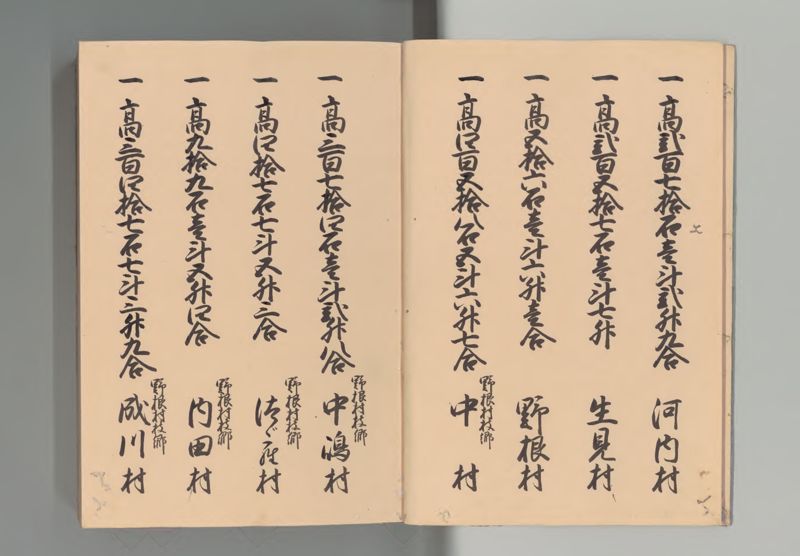 一高弐百七拾石壱斗弐升九合 河内村
一高弐百五拾七石壱斗七升 生見村
一高五拾六石壱斗六升壱合 野根村
野根村枝郷
一高四百五拾八石五斗六升七合 中村
野根村枝郷
一高三百七拾四石壱斗弐升八合 中嶋村
野根村枝郷
一高四拾七石七斗五升三合 村
野根村枝郷
一高九拾九石壱斗五升四合 内田村
野根村枝郷
一高三百四拾七石七斗三升九合 成川村